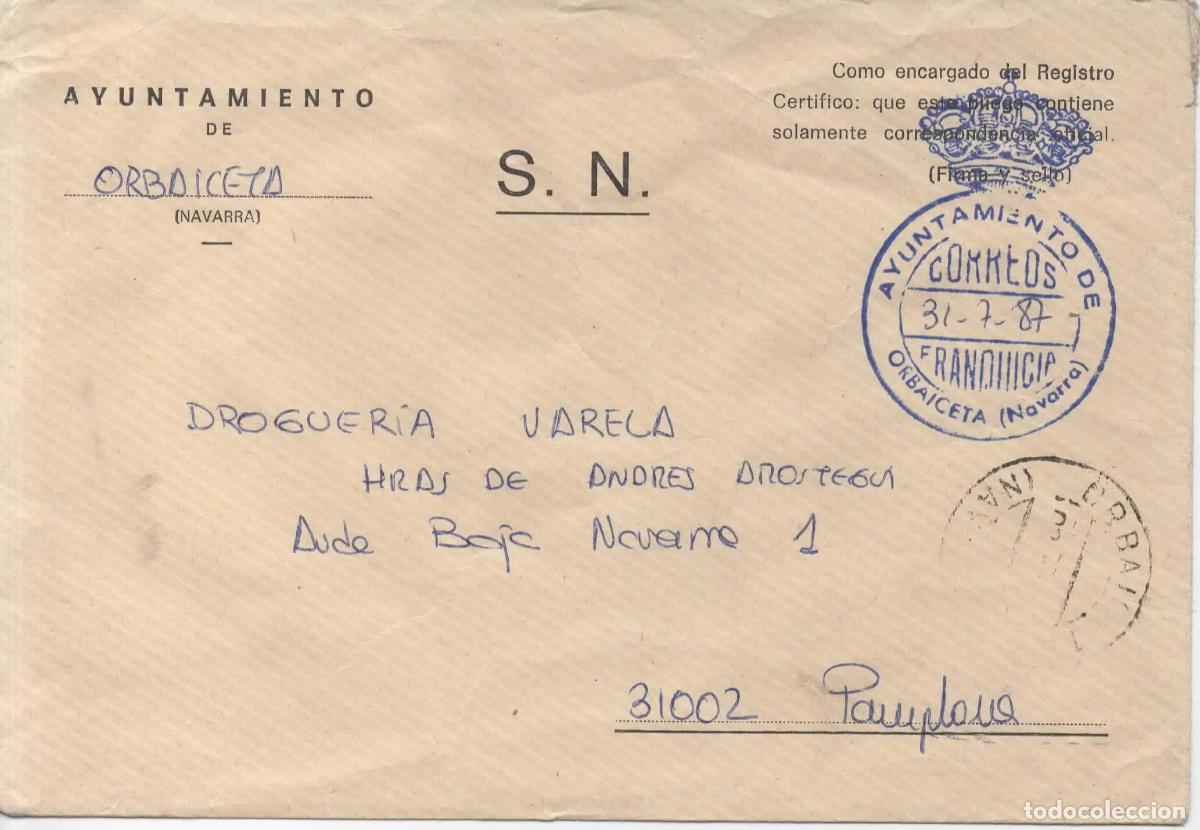 AYUNTAMIENTO
DE
ORBAICETA
(NAVARRA)
S. N.
Como encargado del Registro
Certifico: que este pliego contiene
solamente correspondencia oficial.
(Firma y sello)
AYUNTAMIENTO DE
CORREOS
31-7-87
FRANQUICIA
ORBAICETA (Navarra)
DROGUERÍA VARELA
HRAS DE ANDRES AROSTEGUI
Avda Baja Navarra 1
31002 Pamplona
todocoleccion